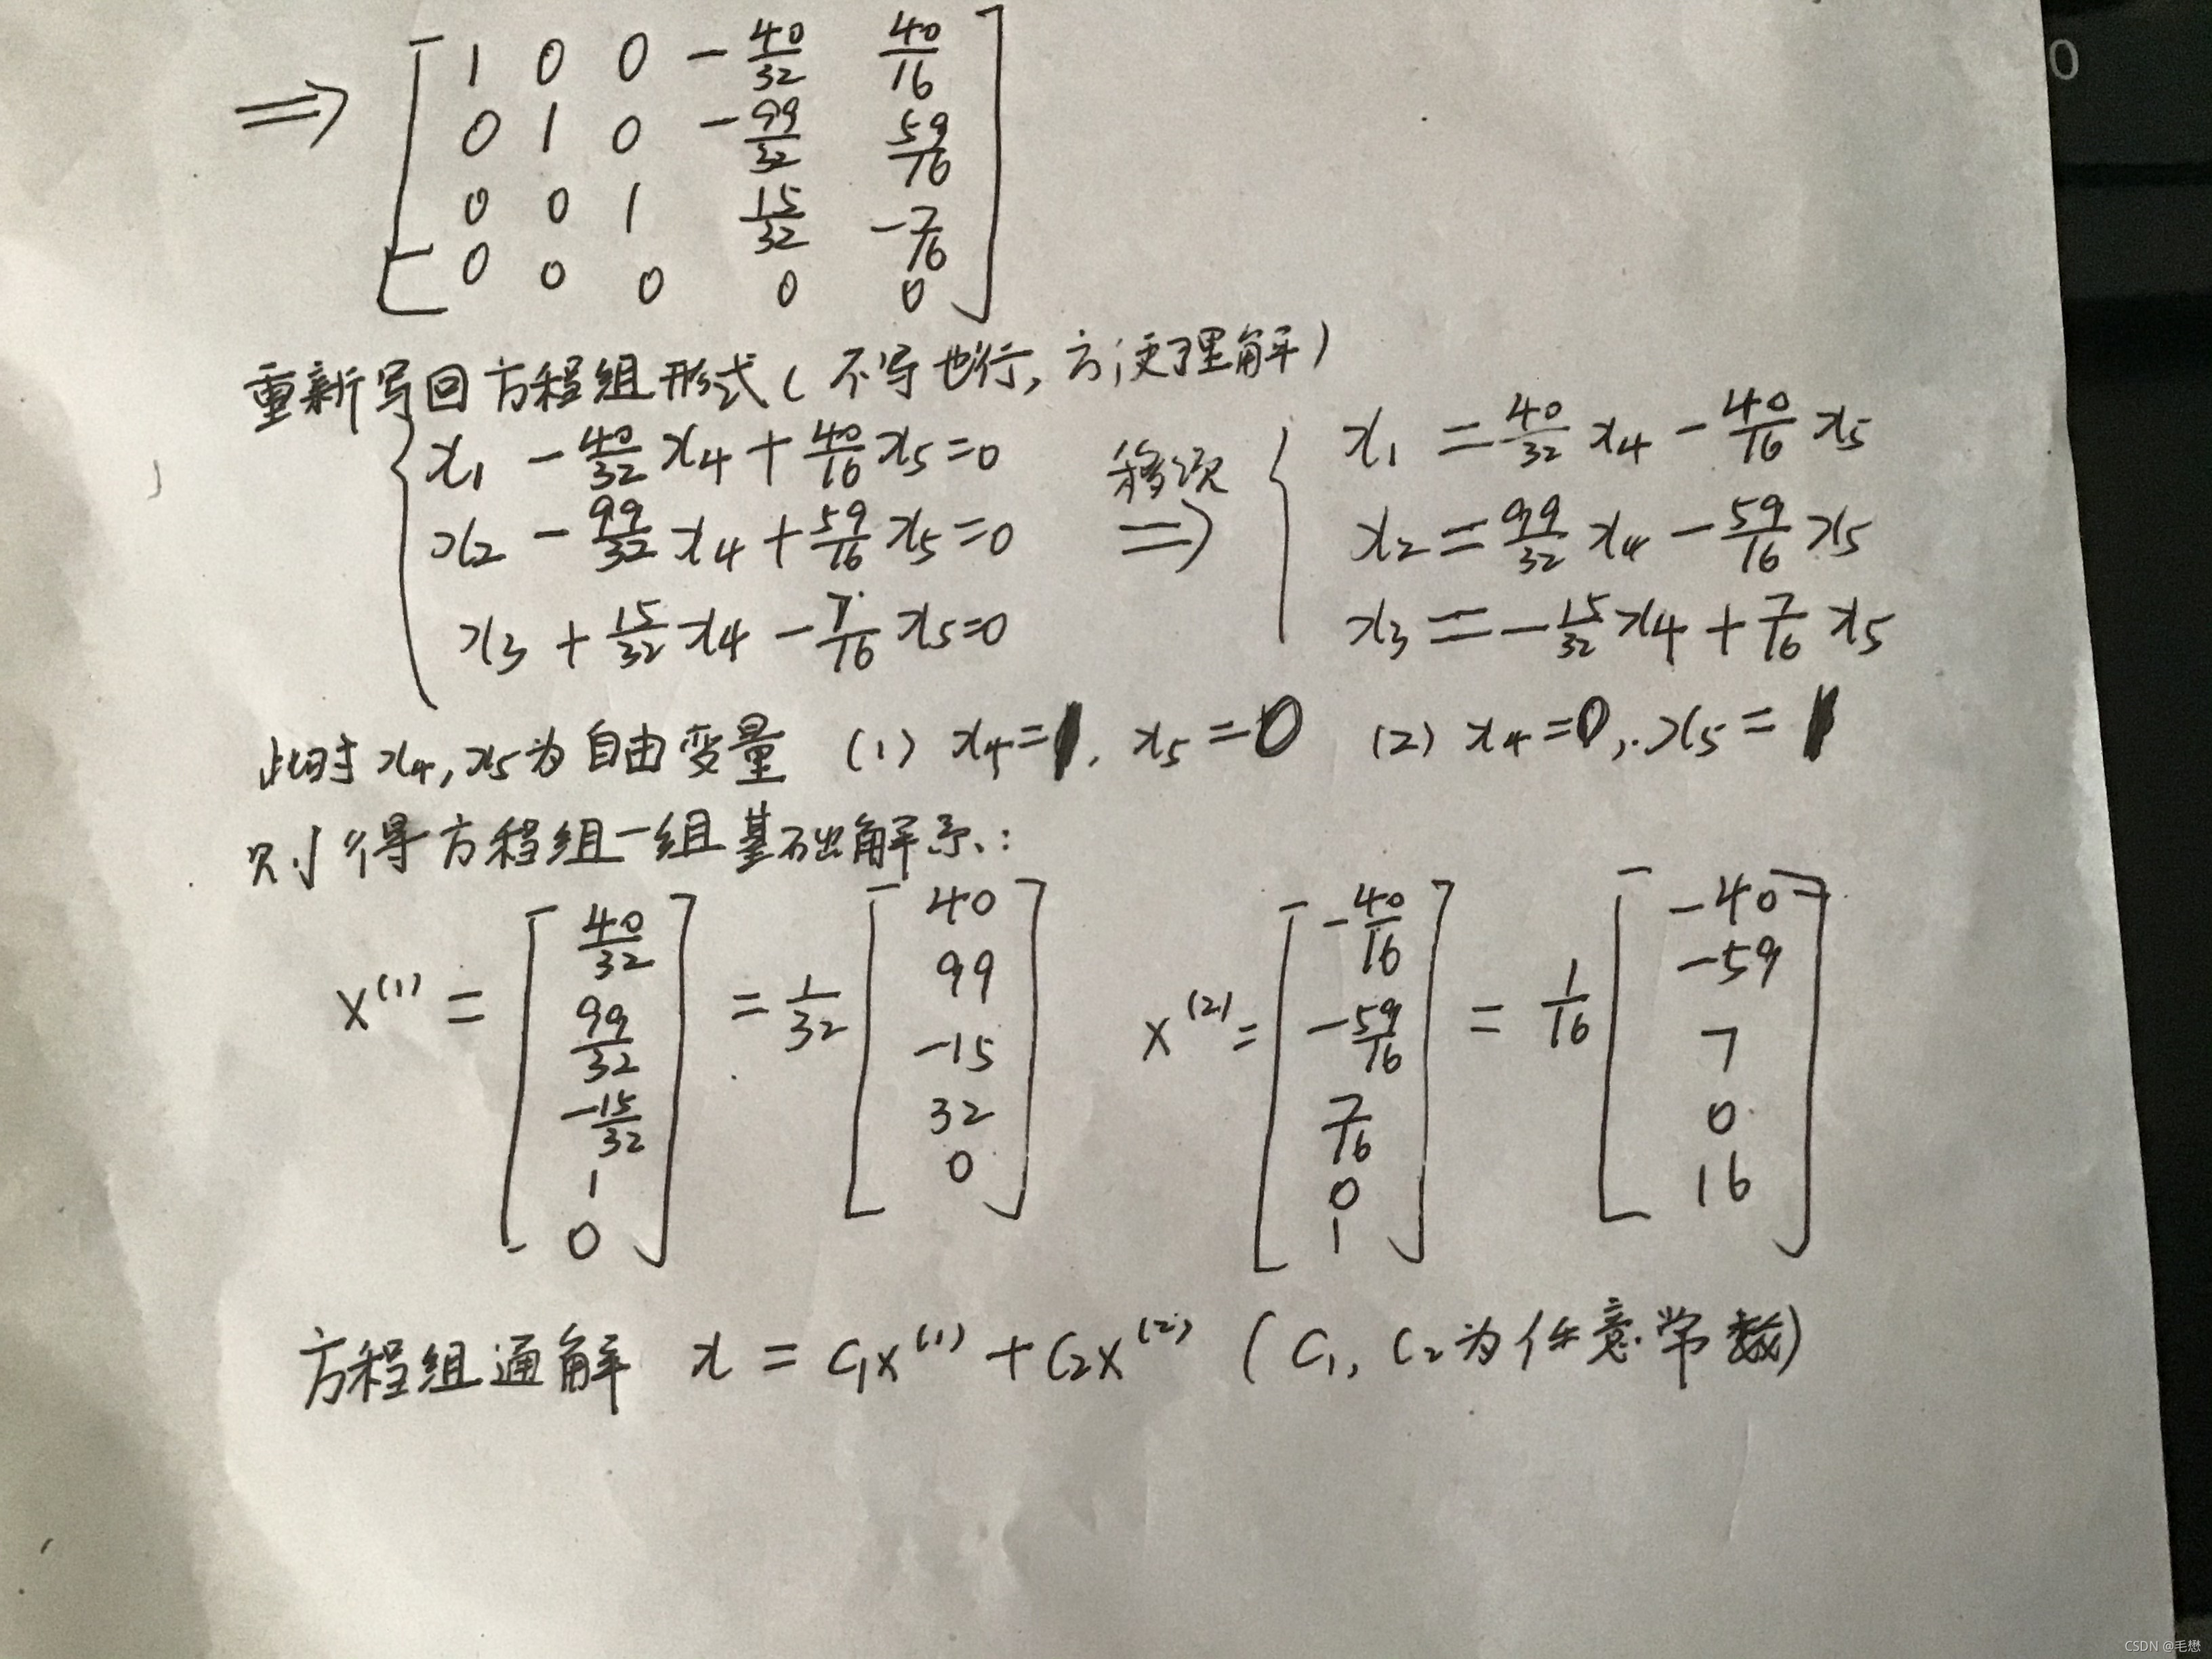 ⇒ [ 1 0 0 -40/32 40/16
0 1 0 -99/32 59/16
0 0 1 15/32 -7/16
0 0 0 0 0 ]
重新写回方程组形式(不写也行,方便理解)
{ x₁ - 40/32 x₄ + 40/16 x₅ = 0
x₂ - 99/32 x₄ + 59/16 x₅ = 0
x₃ + 15/32 x₄ - 7/16 x₅ = 0
移项
⇒
{ x₁ = 40/32 x₄ - 40/16 x₅
x₂ = 99/32 x₄ - 59/16 x₅
x₃ = -15/32 x₄ + 7/16 x₅
此时 x₄, x₅ 为自由变量 (1) x₄=1, x₅=0 (2) x₄=0, x₅=1
则得方程组一组基础解系:
x⁽¹⁾ = [ 40/32 99/32 -15/32 1 0 ] = 1/32 [ 40 99 -15 32 0 ]
x⁽²⁾ = [ -40/16 -59/16 7/16 0 1 ] = 1/16 [ -40 -59 7 0 16 ]
方程组通解 x = c₁x⁽¹⁾ + c₂x⁽²⁾ (c₁, c₂为任意常数)
0
CSDN @毛懋